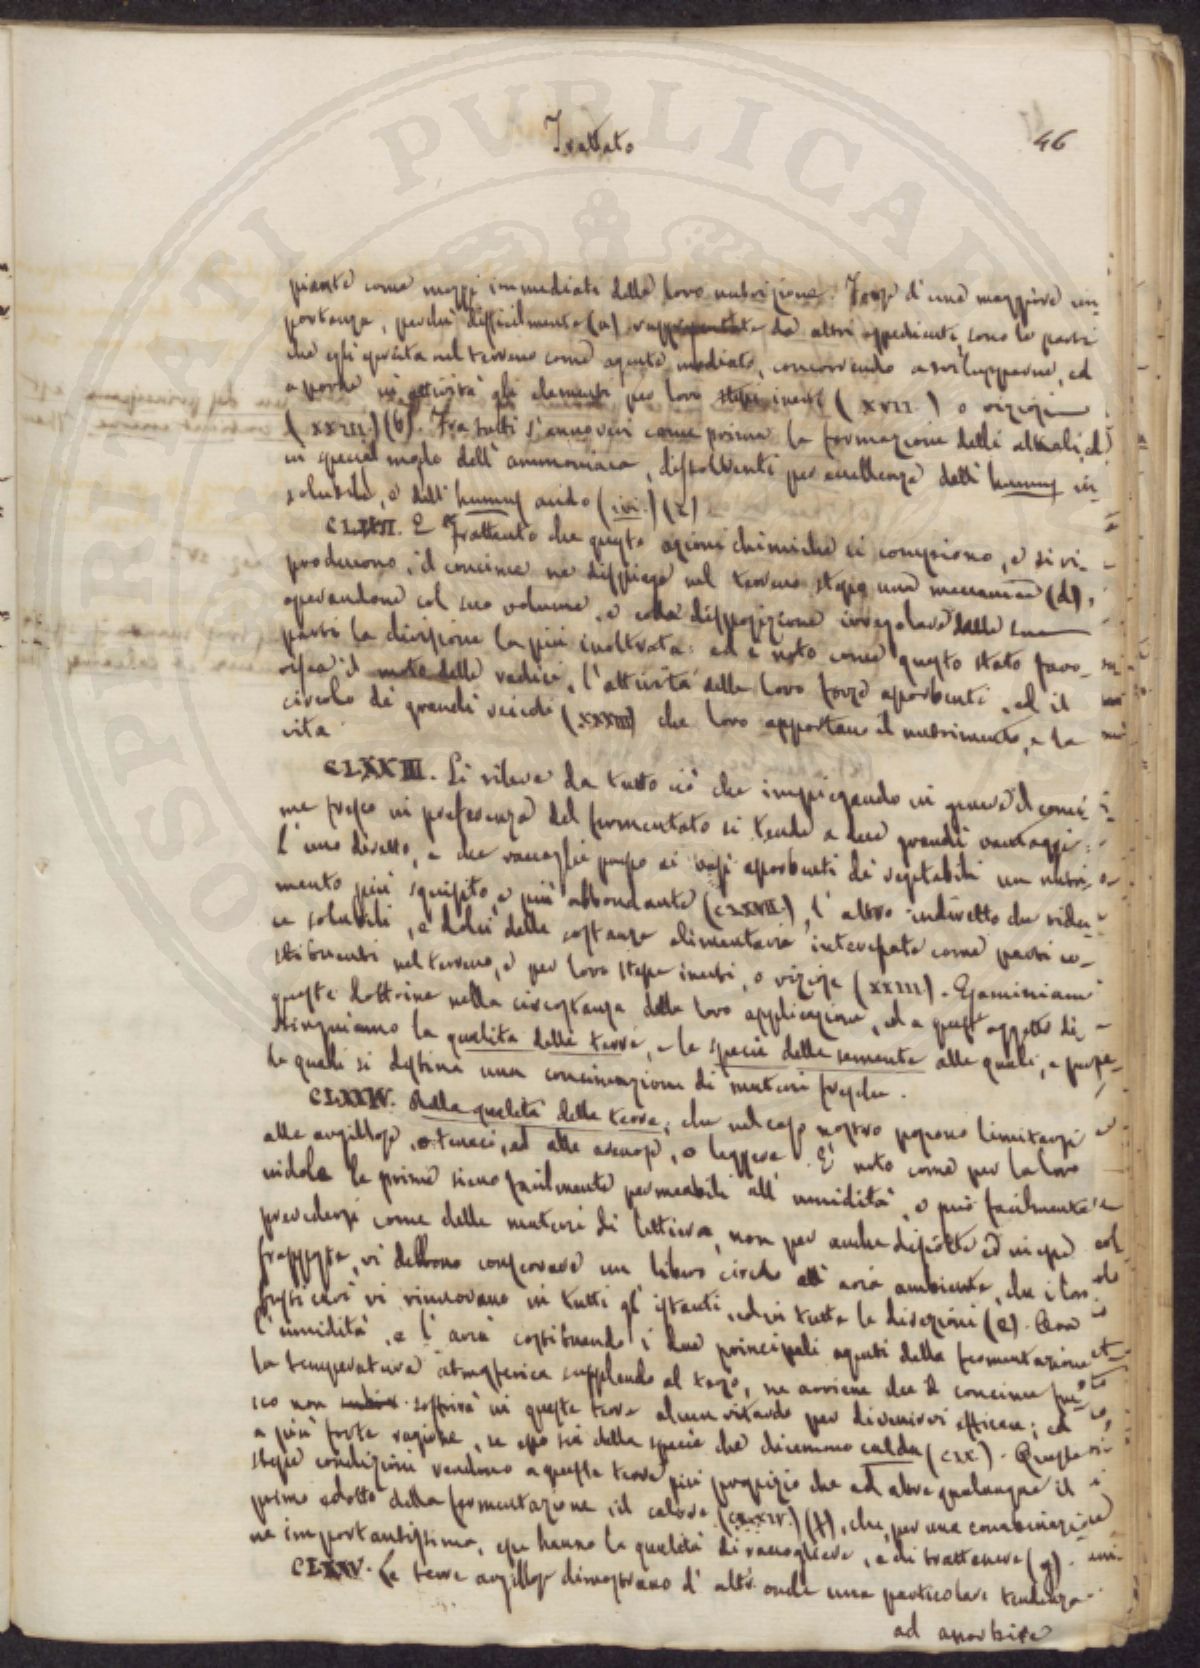 Trattato
46
piante come mezzi immediati della loro nutrizione. Forse d'una maggiore im-
portanza, perchè difficilmente (a) da altri espedienti, sono le parti
che egli quista nel terreno come agente mediato, concorrendo a svilupparne, ed
a porre in attività gli elementi per loro stessi inerti (XVII.) o viziosi
(XXIII.) (b). Fra tutti s'annoveri come prima la formazione delli alkali, ed
in special modo dell'ammoniaca, dissolventi per eccellenza dell'humus in-
solubile, e dell'humus acido (ivi.) (c)
CLXXII. E frattanto che queste azioni chimiche si compiono, e si ri-
producono, il concime ne dispiega nel terreno stesso una meccanica (d),
operandone col suo volume, e colla disposizione irregolare delle sue
parti la divisione la più inoltrata: ed è noto come questo stato favo-
risca il moto delle radici, l'attività delle loro forze assorbenti, ed il
circolo de' grandi veicoli (XXXIII) che loro apportano il nutrimento, e la
vita
CLXXIII. Si rileva da tutto ciò che impiegando in genere il conci-
me fresco in preferenza del fermentato si tende a due grandi vantaggi:
l'uno diretto, e che raccoglie ai vasi assorbenti de' vegetabili un nutri-
mento più squisito, e più abbondante (CLXXII.), l'altro indiretto che riduce
solubili, e dolci delle sostanze alimentarie interessate come parti co-
stituenti nel terreno, e per loro stesse inerti, o viziose (XXIII). Esaminiamo
queste dottrine nella circostanza della loro applicazione, ed a quest'oggetto di-
stinguiamo la qualità delle terre, e la specie delle semente alle quali, e
le quali si destina una concimazione di materi fresche.
CLXXIV. Della qualità delle terre; che nel caso nostro possono limitarsi
alle argillose, o tenaci, ed alle arenose, o leggere. È noto come per la loro
indole le prime sieno facilmente permeabili all'umidità, e può facilmente
prevedersi come delle materi di lettiera, non per anche disfatte ed in esse
frapposte, vi debbono conservare un libero circolo all'aria ambiente, che i loro
vi rinnovano in tutti gl'istanti, ed in tutte le direzioni (e). Ora
l'umidità, e l'aria costituendo i due principali agenti della fermentazione
la temperatura atmosferica supplendo al terzo, ne avviene che il concime fre-
sco non soffrirà in queste terre alcun ritardo per divenirvi efficace; ed
a più forte ragione, se esso sia della specie che dicemmo calda (CLX.). Queste
stesse condizioni rendono a queste terre più propizio che ad altre qualunque il
primo edotto della fermentazione, il calore (CXXIV.) (f), che, per una combinazio-
ne importantissima, esse hanno la qualità di raccogliere, e di trattenere (g).
CLXXV. Le terre argillose dimostrano d'altronde una particolare tendenza
ad assorbire